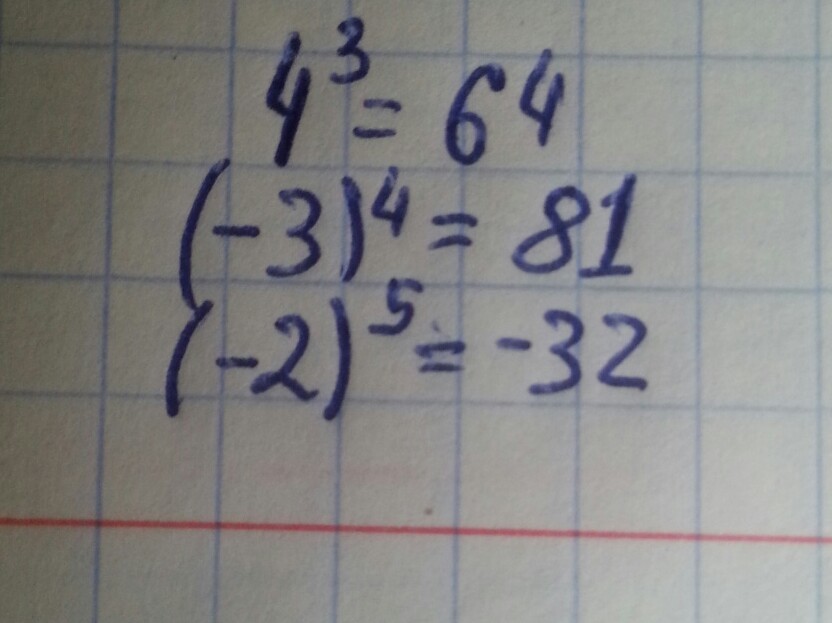 4³ = 64
(-3)⁴ = 81
(-2)⁵ = -32